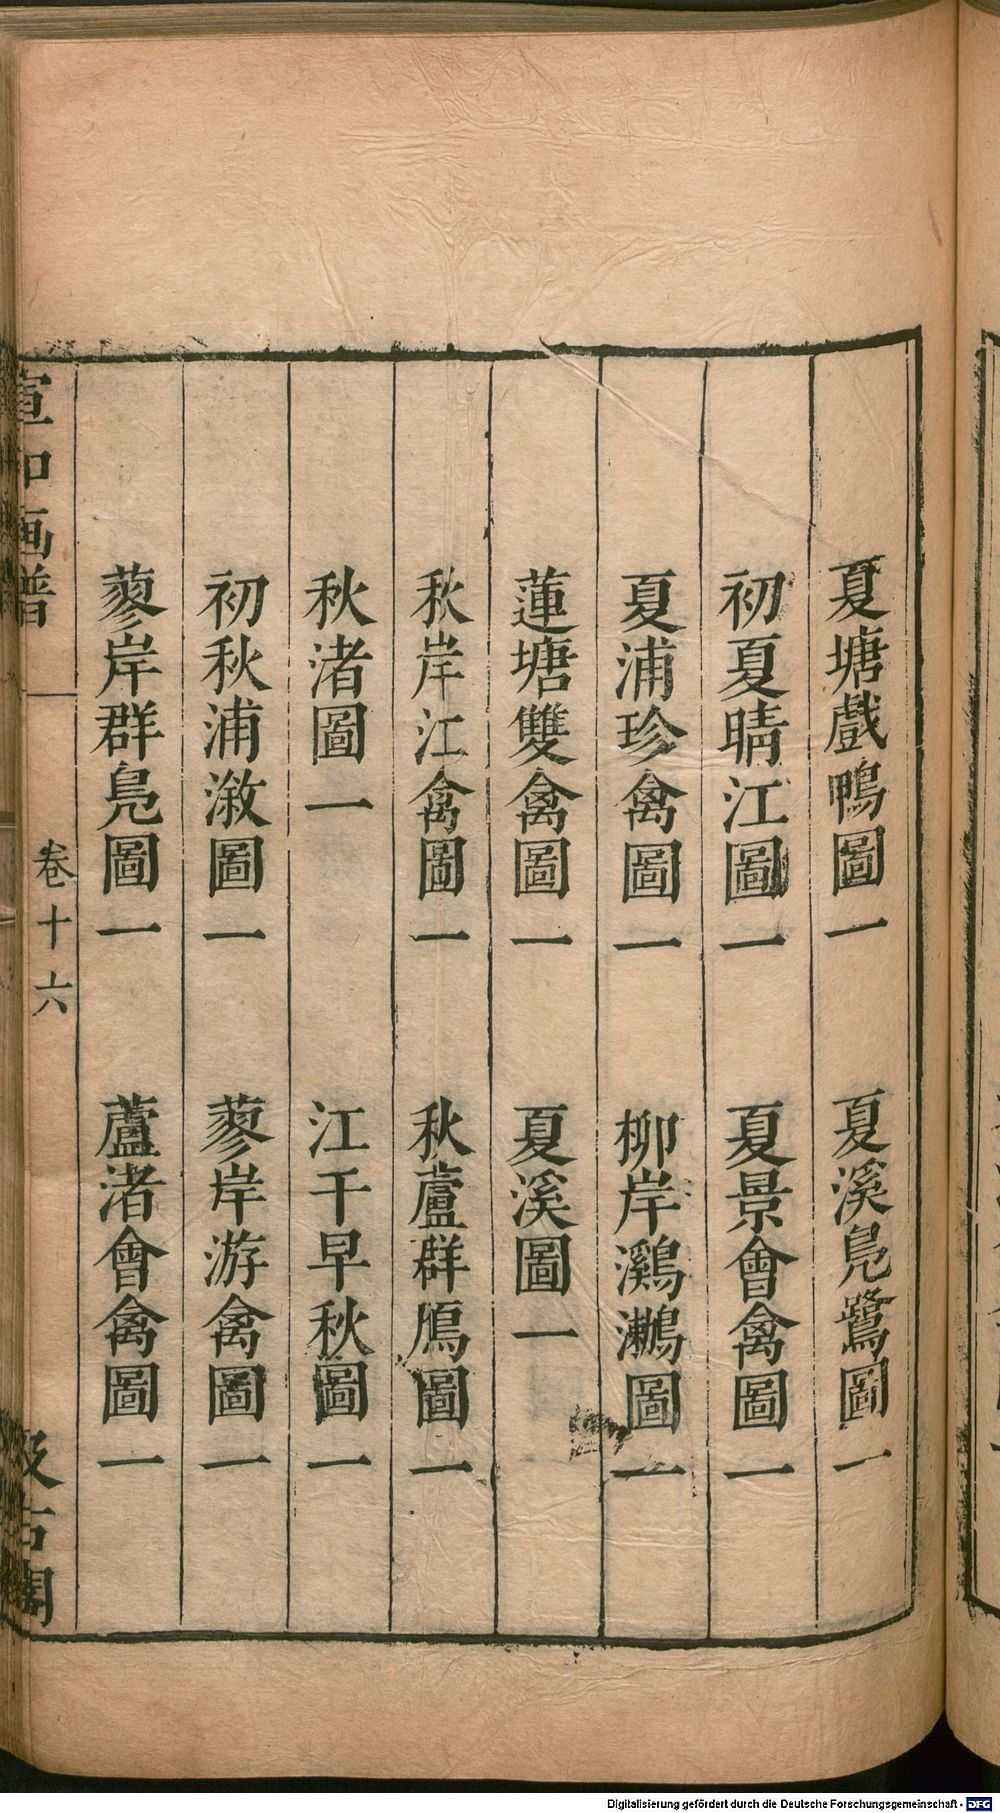 夏塘戲鴨圖一　夏溪鳧鷺圖一
初夏晴江圖一　夏景會禽圖一
夏浦珍禽圖一　柳岸鸂鷘圖一
蓮塘雙禽圖一　夏溪圖一
秋岸江禽圖一　秋蘆群鴈圖一
秋渚圖一　江干早秋圖一
初秋浦漵圖一　蓼岸游禽圖一
蓼岸群鳧圖一　蘆渚會禽圖一
宣和画譜　卷十六　汲古閣
Digitalisierung gefördert durch die Deutsche Forschungsgemeinschaft - DFG